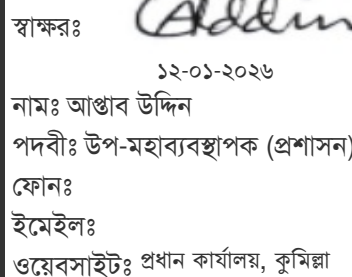 স্বাক্ষরঃ
১২-০১-২০২৬
নামঃ আপ্তাব উদ্দিন
পদবীঃ উপ-মহাব্যবস্থাপক (প্রশাসন)
ফোনঃ
ইমেইলঃ
ওয়েবসাইটঃ প্রধান কার্যালয়, কুমিল্লা